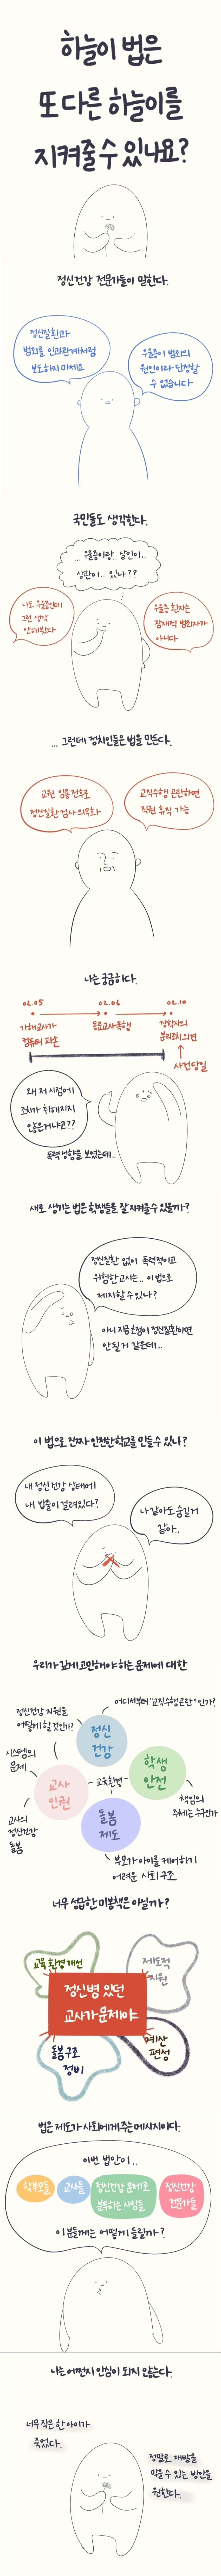 하늘이 법은
또 다른 하늘이를
지켜줄 수 있나요?
정신건강 전문가들이 말한다.
정신질환과
범죄를 인과관계처럼
보도하지 마세요
우울증이 범죄의
원인이라 단정할
수 없습니다
국민들도 생각한다.
... 우울증이랑.. 살인이..
상관이.. 있나??
나도 우울증인데
그런 생각
안해봤다
우울증 환자는
잠재적 범죄자가
아니다
... 그런데 정치인들은 법을 만든다.
교원 임용 전후로
정신질환 검사 의무화
교직수행 곤란하면
직권 휴직 가능
나는 궁금하다.
02.05
02.06
02.10
가해교사가
컴퓨터 파손
동료교사 폭행
장학사의
분리조치 의견
사건당일
왜 저 시점에
조치가 취해지지
않은거냐고??
폭력성향을 보였는데..
새로 생기는 법은 학생들을 잘 지켜줄 수 있을까?
정신질환 없이 폭력적이고
위험한 교사는.. 이 법으로
제지할 수 있나?
아니 지금 초점이 정신질환이면
안될 거 같은데..
이 법으로 진짜 안전한 학교를 만들 수 있나?
내 정신건강 상태에
내 밥줄이 걸려있다?
나 같아도 숨길거
같아..
우리가 깊게 고민해야 하는 문제에 대한
어디서부터 "교직수행곤란"인가?
정신건강 지원을
어떻게 할 것인가?
정신
건강
시스템의
문제
학생
안전
교사
인권
교육환경
돌봄
제도
책임의
주체는 누구인가
교사의
정신건강
돌봄
부모가 아이를 케어하기
어려운 사회구조
너무 성급한 미봉책은 아닐까?
교육 환경 개선
제도적
지원
정신병 있던
교사가 문제야
돌봄구조
정비
예산
편성
법은 제도가 사회에게 주는 메시지이다.
이번 법안이..
학부모들
교사들
정신건강 문제로
분투하는 사람들
정신건강
전문가들
이분들께는 어떻게 들릴까?
나는 어쩐지 안심이 되지 않는다.
너무 작은 한 아이가
죽었다.
정말로 재발을
막을 수 있는 방안을
원한다.